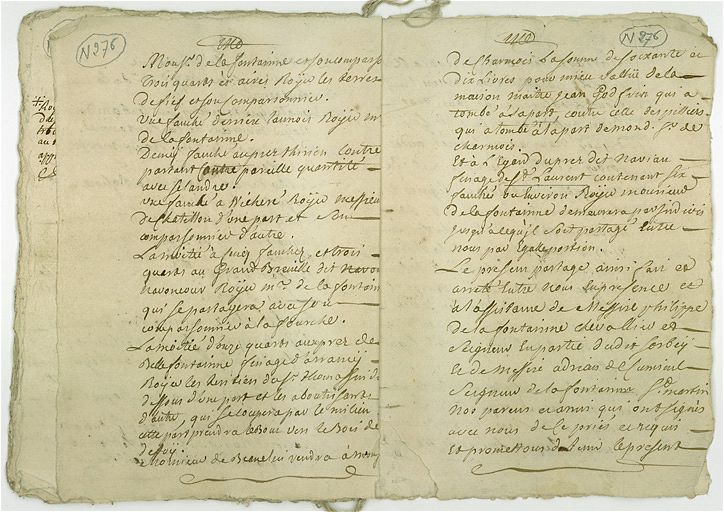 N 276
Mons.r de la fontainne et son comparsö
trois quarts et aires Royé les terres
de fief et son comparsonnier.
Une fauché derriere Launois Royé mr
de la fontainne.
Demy fauché au pre thirien contre
partant contre pareille quantité
avec
une fauché a Royé messieu
de Chatillon d'une part et
comparsonnier d'autre.
La moitié a fauchez, et trois
quarts au Grand Breuille dit navon
Royé mr. de la fontain
qui se partagera avec son
comparsonnier a la fourche.
La moitié d'onze quarts au prez de
Belle fontainne finage d'arrancÿ
Royé les heritiers du Sr.
dessous d'une part et les aboutissants
d'autre, qui se coupera par le milieu
prendra le Bout vers le Bois de

monsieur de rendra à mons
N 276
de Charmois La somme de soixante et
Dix Livres pour mieu vallüe de la
maison maitre Jean Godfrin qui a
tombé a sa part, contre celle des
qui a tombé a la part de mond. Sr. de
charmois.
Et a L'Egard du prez dit Naviau
finage de St. Laurent contenant six
fauchés ou Environ Royé monsieur
de la fontainne demeurera par indivis
jusqu'a ce qu'jl soit partagé Entre
nous par Egale portion.
Le present partage ainsi fait et
arreté Entre nous En presence et
a L'assistance de Messire philippe
de la fontainne chevallier et
Seigneur En partie dudit Sorbeÿ
et de Messire adrien de
Seigneur de la fontainne St. martin
Nos parens et amis qui ont signés
avec nous de ce priés et requis
Et promettons de tenir le present